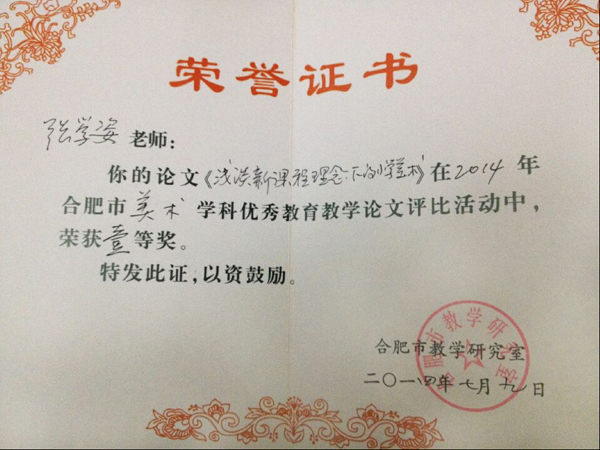 荣誉证书
张学姿 老师：
你的论文《浅谈新课程理念下的小学美术》在2014年
合肥市 美术 学科优秀教育教学论文评比活动中，
荣获壹等奖。
特发此证，以资鼓励。
合肥市教学研究室
二〇一四年七月十九日
合肥市教学研究室